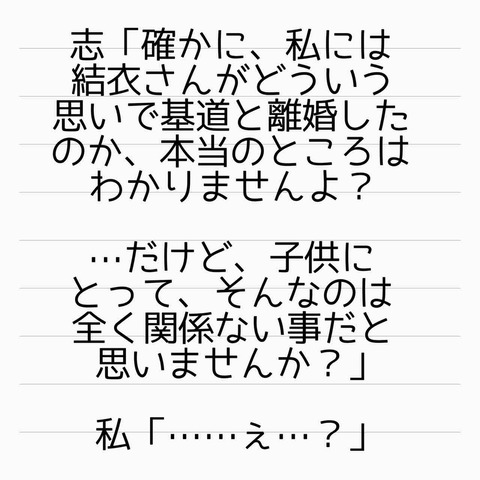 志「確かに、私には
結衣さんがどういう
思いで基道と離婚した
のか、本当のところは
わかりませんよ？
…だけど、子供に
とって、そんなのは
全く関係ない事だと
思いませんか？」
私「……ぇ…？」